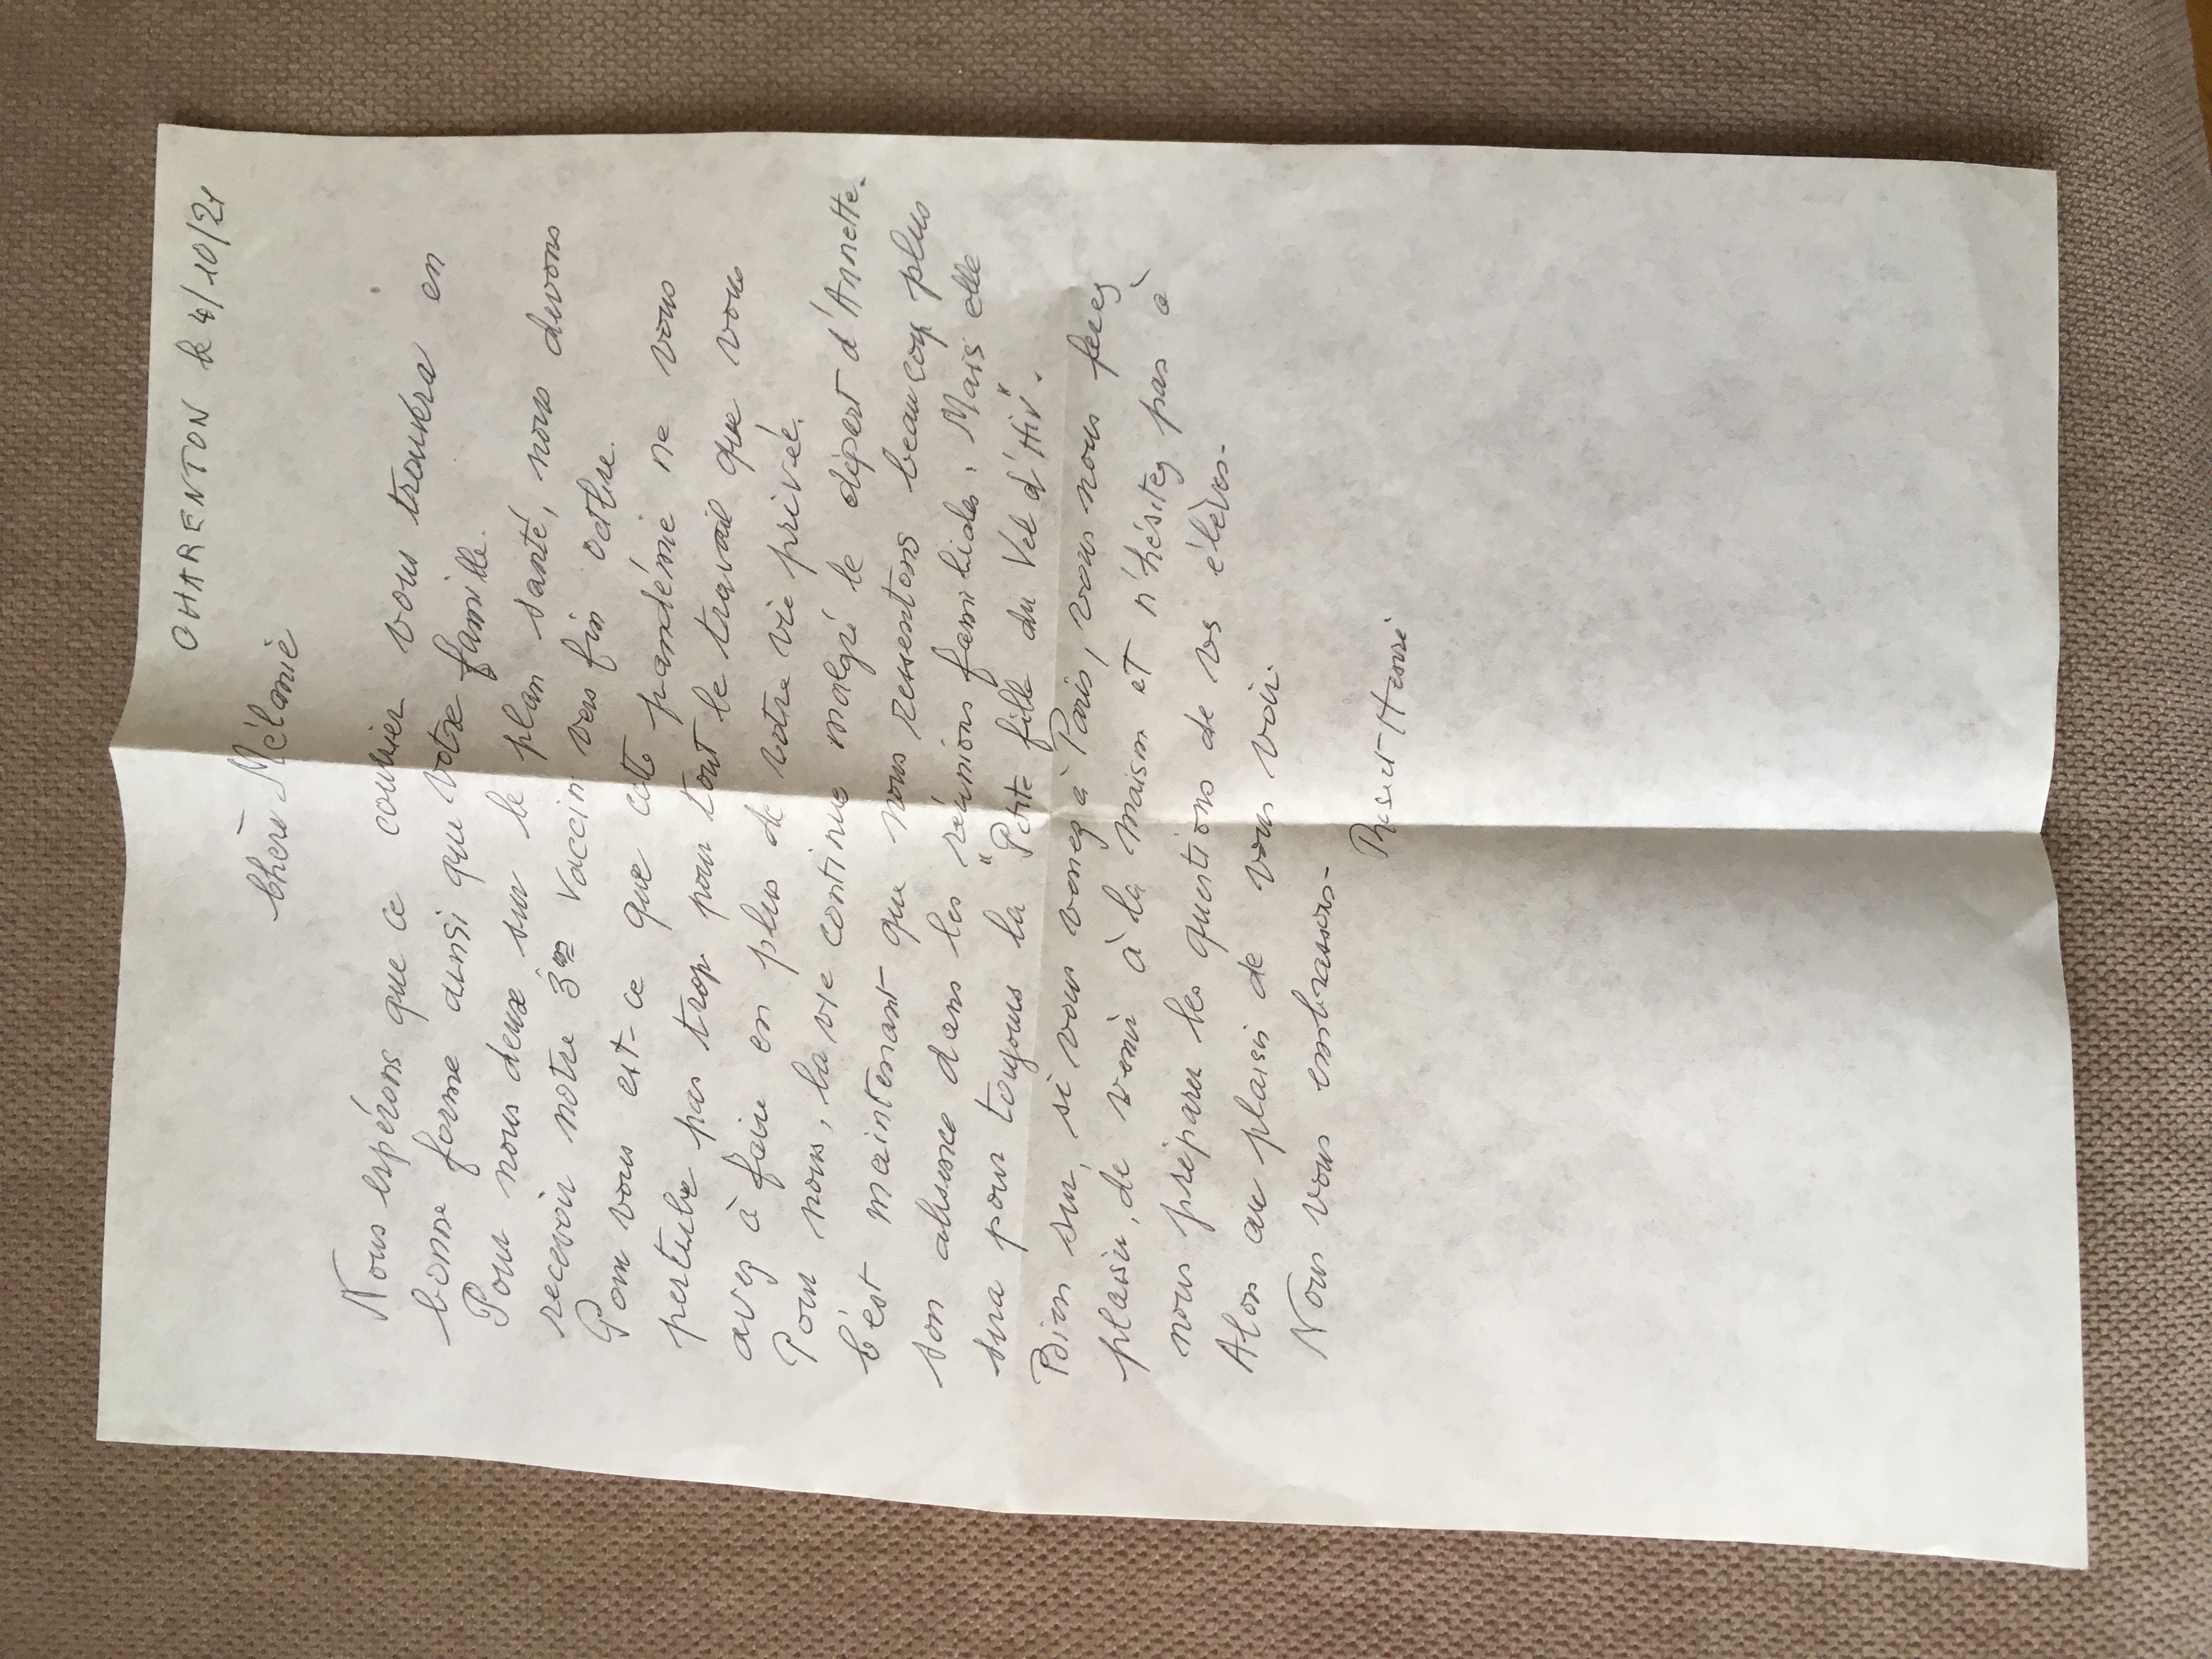 CHARENTON le 4/10/21
Chère Mélanie
Nous espérons que ce courrier vous trouvera en
bonne forme ainsi que votre famille.
Pour nous deux sur le plan santé, nous devons
recevoir notre 3ème vaccin vers fin octbre.
Pour vous est-ce que cette pandémie ne vous
perturbe pas trop pour tout le travail que vous
avez à faire en plus de votre vie privée.
Pour nous, la vie continue malgré le départ d'Annette.
C'est maintenant que nous ressentons beaucoup plus
son absence dans les réunions familiales. Mais elle
sera pour toujours la "Petite fille du Vel d'Hiv".
Bien sur, si vous venez à Paris, vous nous ferez
plaisir, de venir à la maison et n'hésitez pas à
nous préparer les questions de vos élèves.
Alors au plaisir de vous voir.
Nous vous embrassons-
Henri